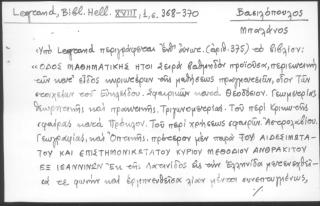 Legrand, Bibl. Hell. XVIII, 1, σ. 368-370
Βασιλόπουλος
Μπαλάνος
Ὑπὸ Legrand περιγράφεται (ἀριθ. 375) τὸ βιβλίον:
"ΟΔΟΣ ΜΑΘΗΜΑΤΙΚΗΣ ΗΤΟΙ Σειρὰ βαθμηδὸν προϊοῦσα, περιεκτικὴ
τῶν κατ' εἶδος κυριωτέρων τῆς μαθήσεως πραγματειῶν, οἷον τῶν
στοιχείων τοῦ Εὐκλείδου. Σφαιρικῶν κατὰ Θεοδόσιον. Γεωμετρίας
θεωρητικῆς καὶ πρακτικῆς. Τριγωνομετρίας. Τοῦ περὶ
σφαίρας κατὰ Πρόκλον. Τοῦ περὶ χρήσεως σφαιρῶν. Ἀστρολαβίου.
Γεωγραφίας, καὶ Ὀπτικῆς. πρότερον μὲν παρὰ ΤΟΥ ΑΙΔΕΣΙΜΩΤΑ-
ΤΟΥ ΚΑΙ ΕΠΙΣΤΗΜΟΝΙΚΩΤΑΤΟΥ ΚΥΡΙΟΥ ΜΕΘΟΔΙΟΥ ΑΝΘΡΑΚΙΤΟΥ
ΕΞ ΙΩΑΝΝΙΝΩΝ Ἐκ τῆς Λατινίδος εἰς τὴν Ἑλληνίδα μετενεχθεῖ-
σά τε φωνὴν καὶ ἑρμηνευθεῖσα λίαν μέντοι συνεπτυγμένως,